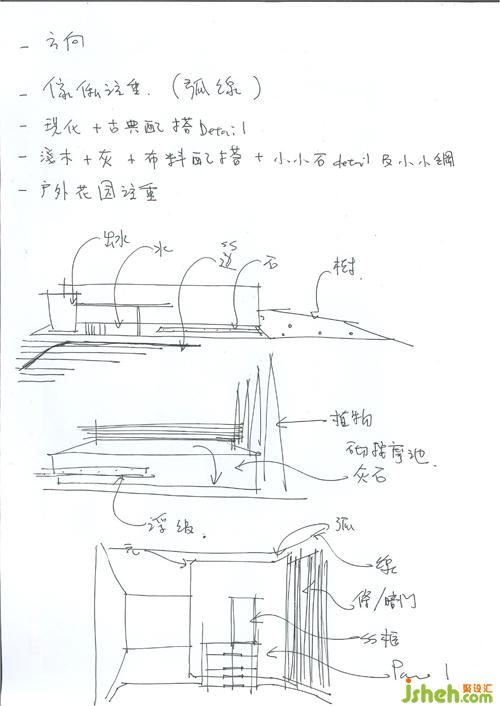 - 方向
- 傢俬注重. (弧線)
- 現代 + 古典配搭 Detail
- 木 + 灰 + 布料配搭 + 小小石 detail 及小小鋼
- 户外花园注重
出水
水
SS
边
石
树.
植物
按摩池.
灰石
浮级.
弧
線
條/暗门
SS框
聚设汇
jsheh.com